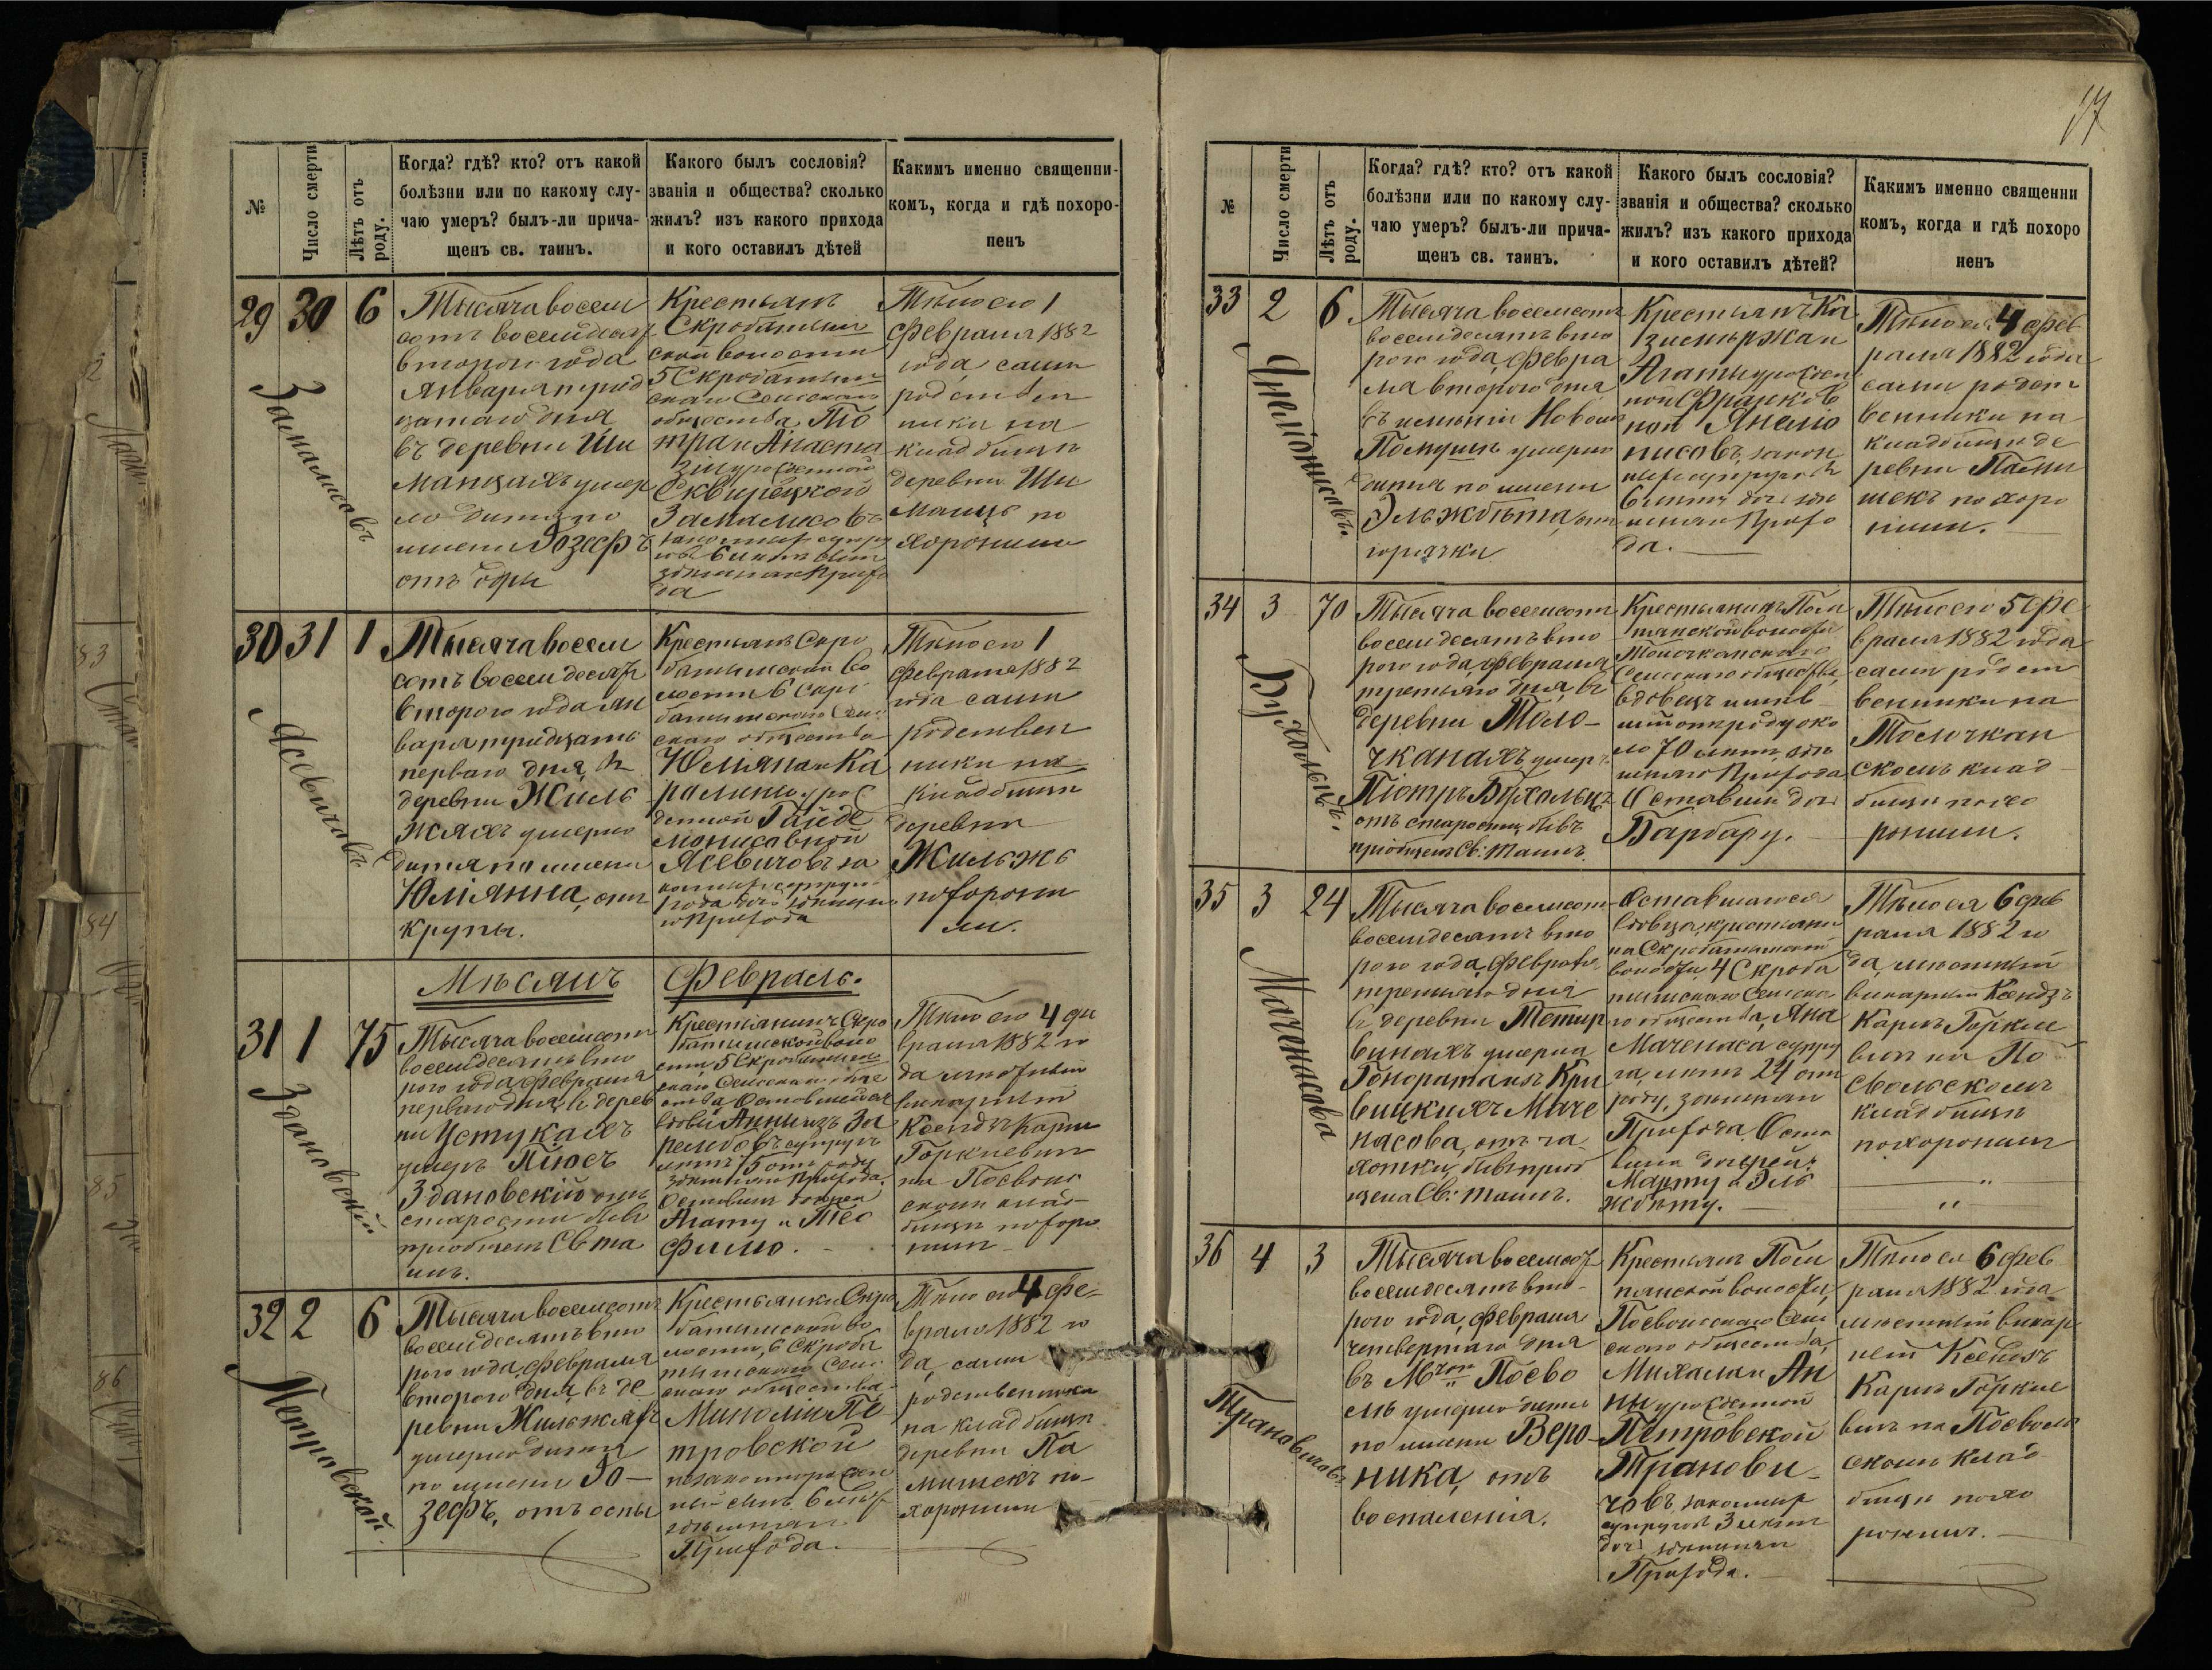 17
№
Число смерти
Лѣтъ отъ роду.
Когда? гдѣ? кто? отъ какой
болѣзни или по какому слу-
чаю умеръ? былъ-ли прича-
щенъ св. таинъ.
Какого былъ сословія?
званія и общества? сколько
жилъ? изъ какого прихода
и кого оставилъ дѣтей
Какимъ именно священни-
комъ, когда и гдѣ похоро-
ненъ
29
30
6
Тысяча восем
сотъ восемдесятъ
второго года
Января трид
цатаго дня
въ деревни Ши
манцахъ умер
ло дитя по
имени Іозефъ
отъ
Крестьянъ
Скробатишки
ской волости
5 Скробатишк
скаго Сельскаго
общества Пе
тра и Анаста
зіи урожденной
Сквирецкой
законныхъ супру
говъ 6 лѣтъ
здѣшняго Прихо
да
Тѣло его 1
Февраля 1882
года сами
родствен
ники на
кладбищѣ
деревни Ши
манцъ по
хоронили
30
31
1
Ясевичовъ
Тысяча восем
сотъ восемдесятъ
второго года ян
варя тридцать
перваго дня въ
деревни Жиль
жахъ умерло
дитя по имени
Юліянна, отъ
крупы.
Крестьянъ Скро
батишской во
лости 6 Скро
батишскаго Сель
скаго общества
Юліяна и Ка
ролины урож
денной
Ясевичовъ за
конныхъ супру
здѣшня
го Прихода
Тѣло его 1
Февраля 1882
года сами
родствен
ники на
кладбищѣ
деревни
Жильжъ
похорони
ли.
Мѣсяцъ Февраль.
31
1
75
Здановскій
Тысяча восемсотъ
восемдесятъ вто
рого года, февраля
перваго дня въ дерев
ни Устукахъ
умеръ Піюсъ
Здановскій отъ
старости бывъ
пріобщенъ Св. та
инъ.
Крестьянинъ Скро
батишской воло
сти, 5 Скробатиш
скаго Сельскаго обще
ства Оставшейся
вдовы Анны изъ За
рембовъ супругъ
лѣтъ 75 отъ роду
здѣшняго Прихода.
Оставилъ дочерей
Агату и Тео
филю.
Тѣло его 4 фе
враля 1882 го
да мѣстный
викарный
Ксендзъ Карлъ
Горкевичъ
на Посволь
скомъ клад-
бищѣ похоро
нилъ
32
2
6
Петровской
Тысяча восемсотъ
восемдесятъ вто
рого года, февраля
второго дня, въ де
ревни Жильжахъ
умерло дитя
по имени Іо-
зефъ, отъ оспы
Крестьянки Скро
батишской во
лости, 6 Скроба
тишскаго Сель
скаго общества
Пе
тровской
незаконнорожден
ный сынъ, 6 лѣтъ
здѣшняго
Прихода.
Тѣло его 4 фе-
враля 1882 го
да, сами
родственники
на кладбищѣ
деревни Па
мишекъ по-
хоронили
№
Число смерти
Лѣтъ отъ роду.
Когда? гдѣ? кто? отъ какой
болѣзни или по какому слу-
чаю умеръ? былъ-ли прича-
щенъ св. таинъ.
Какого былъ сословія?
званія и общества? сколько
жилъ? изъ какого прихода
и кого оставилъ дѣтей?
Какимъ именно священни
комъ, когда и гдѣ похоро
ненъ
33
2
6
Тысяча восемсотъ
восемдесятъ вто
рого года, февра
ля второго дня
въ имѣніи Новомъ
умерло
дитя по имени
Эльжбѣта, отъ
горячки
Крестьянъ Ка
зимѣржа и
Агаты урожден
ной Франков
ной
законныхъ супруговъ
6 лѣтъ дочь здѣ
шняго Прихо
да.
Тѣло ея 4 фев
раля 1882 года
сами родст
венники на
кладбищѣ де
ревни
похоро
нили.
34
3
70
Бухольцъ.
Тысяча восемсотъ
восемдесятъ вто
рого года, февраля
третьяго дня, въ
деревни Толо-
чканахъ умеръ
Піотръ Бухольцъ
отъ старости, бывъ
пріобщенъ Св: Таинъ.
Крестьянинъ
волости
Толочканскаго
Сельскаго общества,
вдовецъ
отъ роду око
ло 70 лѣтъ, здѣ
шняго Прихода
Оставилъ дочь
Барбару.
Тѣло его 5 фе
враля 1882 года
сами родст
венники на
Толочкан
скомъ клад
бищѣ похо
ронили.
35
3
24
Маченасова
Тысяча восемсотъ
восемдесятъ вто
рого года, февраля
третьяго дня
въ деревни Тетир
винахъ умерла
Гонората изъ Кри
вицкихъ Маче
насова, отъ ча
хотки, бывъ прiоб
щена Св: таинъ.
Оставшагося
вдовца, крестьяни
на Скробатишской
волости, 4 Скроба
тишскаго Сельска
го общества, Яна
Маченаса супру
га, лѣтъ 24 отъ
роду, здѣшняго
Прихода. Оста
вила дочерей:
Марту и Эль
жбѣту.
Тѣло ея 6 фев
раля 1882 го
да, мѣстный
викарный Ксендзъ
Карлъ Горкие
вичъ на По
свольскомъ
кладбищѣ
похоронилъ
36
4
3
Трановичовъ
Тысяча восемсотъ
восемдесятъ вто-
рого года, февраля
четвертаго дня
въ М. Посво
лѣ умерло дитя
по имени Веро-
ника, отъ
воспаленія.
Крестьянъ
волости,
Посвольскаго Сель
скаго общества,
Михала и Ан
ны урожденной
Петровской
Транови-
човъ, законныхъ
супруговъ 3 лѣтъ
дочь здѣшняго
Прихода.
Тѣло ея 6 фев
раля 1882 года
мѣстный викар
ный Ксендзъ
Карлъ Горкие
вичъ на Посволь
скомъ клад
бищѣ похо
ронилъ.